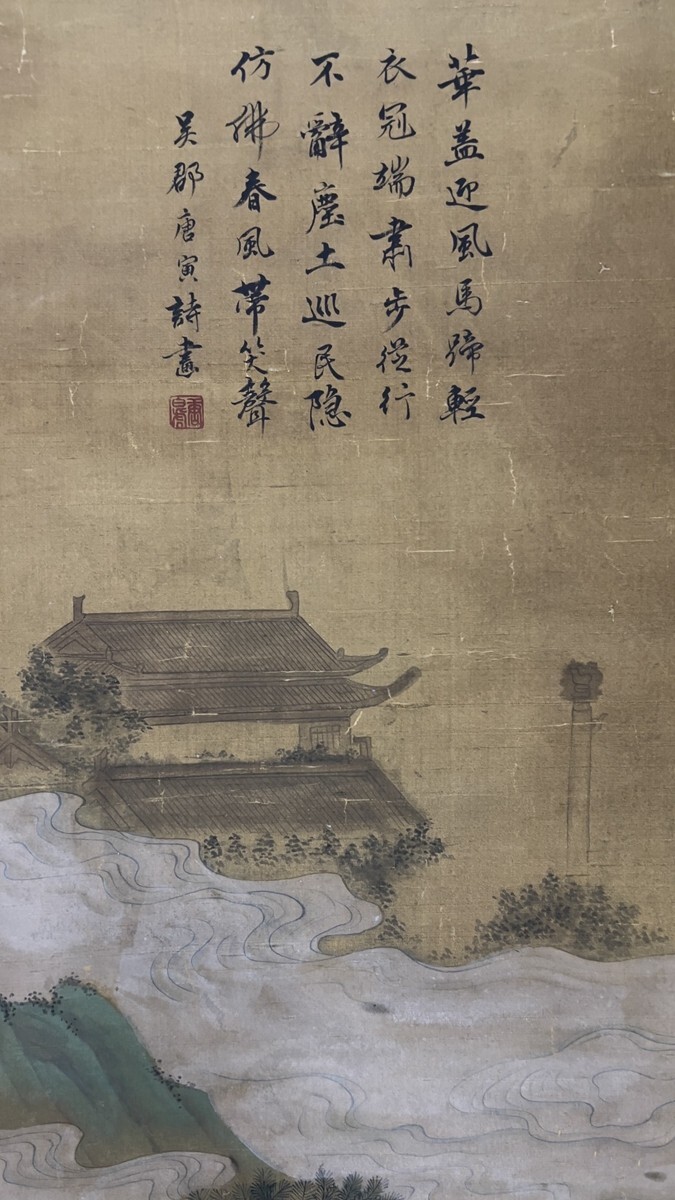 華盖迎風馬蹄輕
衣冠端肅步從行
不辭塵土巡民隐
仿佛春風帶笑聲
吴郡唐寅詩畫